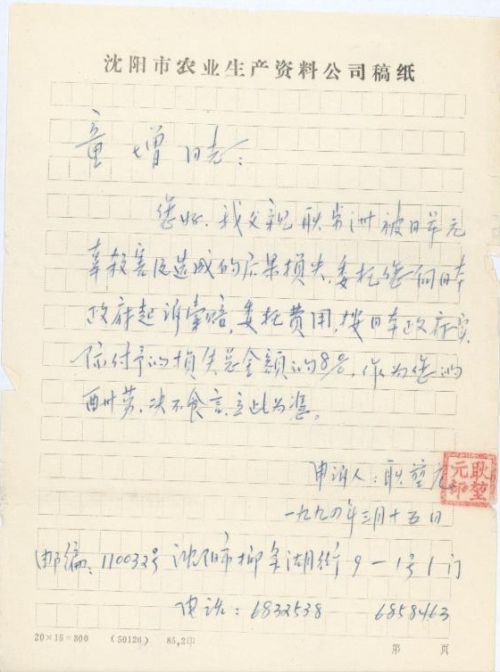 沈阳市农业生产资料公司稿纸
童增同志：
您好，我父亲耿英洲被日军无
辜杀害及造成的后果损失，委托您向日本
政府起诉索赔，委托费用，按日本政府实
际付予的损失总金额的8%，作为您的
酬劳，决不食言，立此为凭。
申诉人：耿堃元
耿堃元印
一九九四年三月十五日
邮编：110032号 沈阳市柳条湖街9-1号1门
电话：6832538 6858463
20×15=300 （50126） 85.2印
第 页